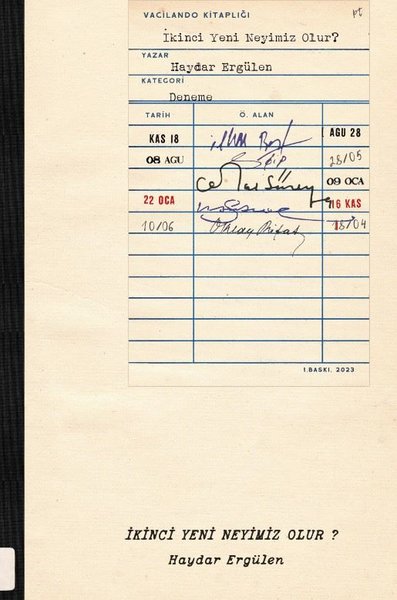 VACİLANDO KİTAPLIĞI
pt
İkinci Yeni Neyimiz Olur?
YAZAR
Haydar Ergülen
KATEGORİ
Deneme
TARİH Ö. ALAN
KAS 18 İlhan Berk AĞU 28
08 AGU 28/05
Cemal Süreya 09 OCA
22 OCA 16 KAS
10/06 Oktay Rifat 18/04
1.BASKI, 2023
İKİNCİ YENİ NEYİMİZ OLUR ?
Haydar Ergülen